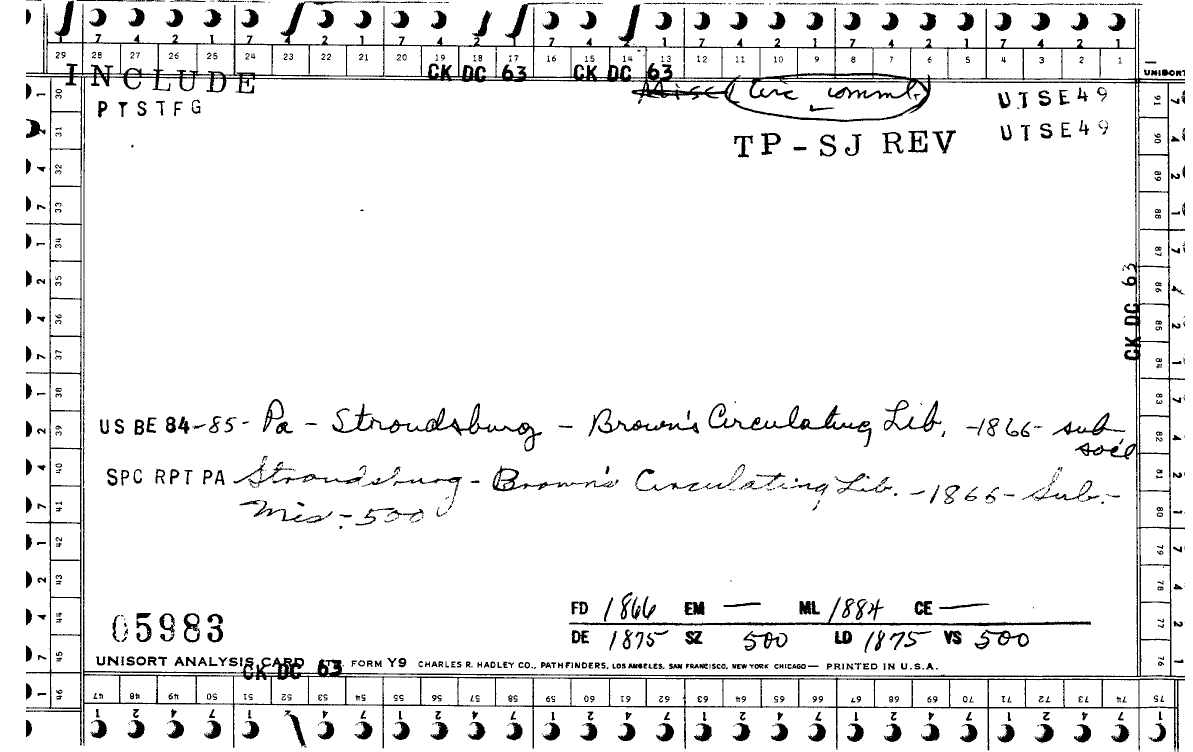 7 4 2 1 7 4 2 1 7 4 2 1 7 4 2 1 7 4 2 1 7 4 2 1 7 4 2 1
29 28 27 26 25 24 23 22 21 20 19 18 17 16 15 14 13 12 11 10 9 8 7 6 5 4 3 2 1
INCLUDE CK DC 63 CK DC 63 UNISORT
PTSTFG Misc (Circ comml.) UTSE49
TP-SJ REV UTSE49
CK DC 63
US BE 84-85- Pa - Stroudsburg - Brown's Circulating Lib. -1866- sub
soc'l
SPC RPT PA Stroudsburg - Brown's Circulating Lib. -1866- Sub.-
Mis-500
FD 1866 EM — ML 1884 CE —
05983 DE 1875 SZ 500 LD 1875 VS 500
UNISORT ANALYSIS CARD FORM Y9 CHARLES R. HADLEY CO., PATHFINDERS, LOS ANGELES, SAN FRANCISCO, NEW YORK CHICAGO — PRINTED IN U.S.A.
CK DC 63
46 47 48 49 50 51 52 53 54 55 56 57 58 59 60 61 62 63 64 65 66 67 68 69 70 71 72 73 74 75